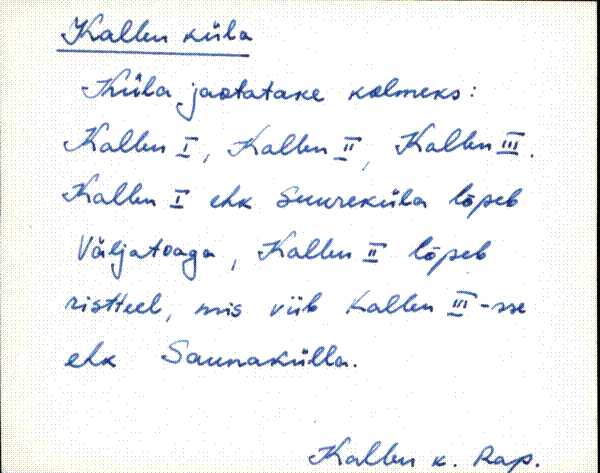 Kallbu küla
Küla jaotatake kolmeks:
Kallbu I, Kallbu II, Kallbu III.
Kallbu I ehk Suureküla lõpeb
Väljatoaga, Kallbu II lõpeb
ristteel, mis viib Kallbu III-sse
ehk Saunakülla.
Kallbu k. Rap.